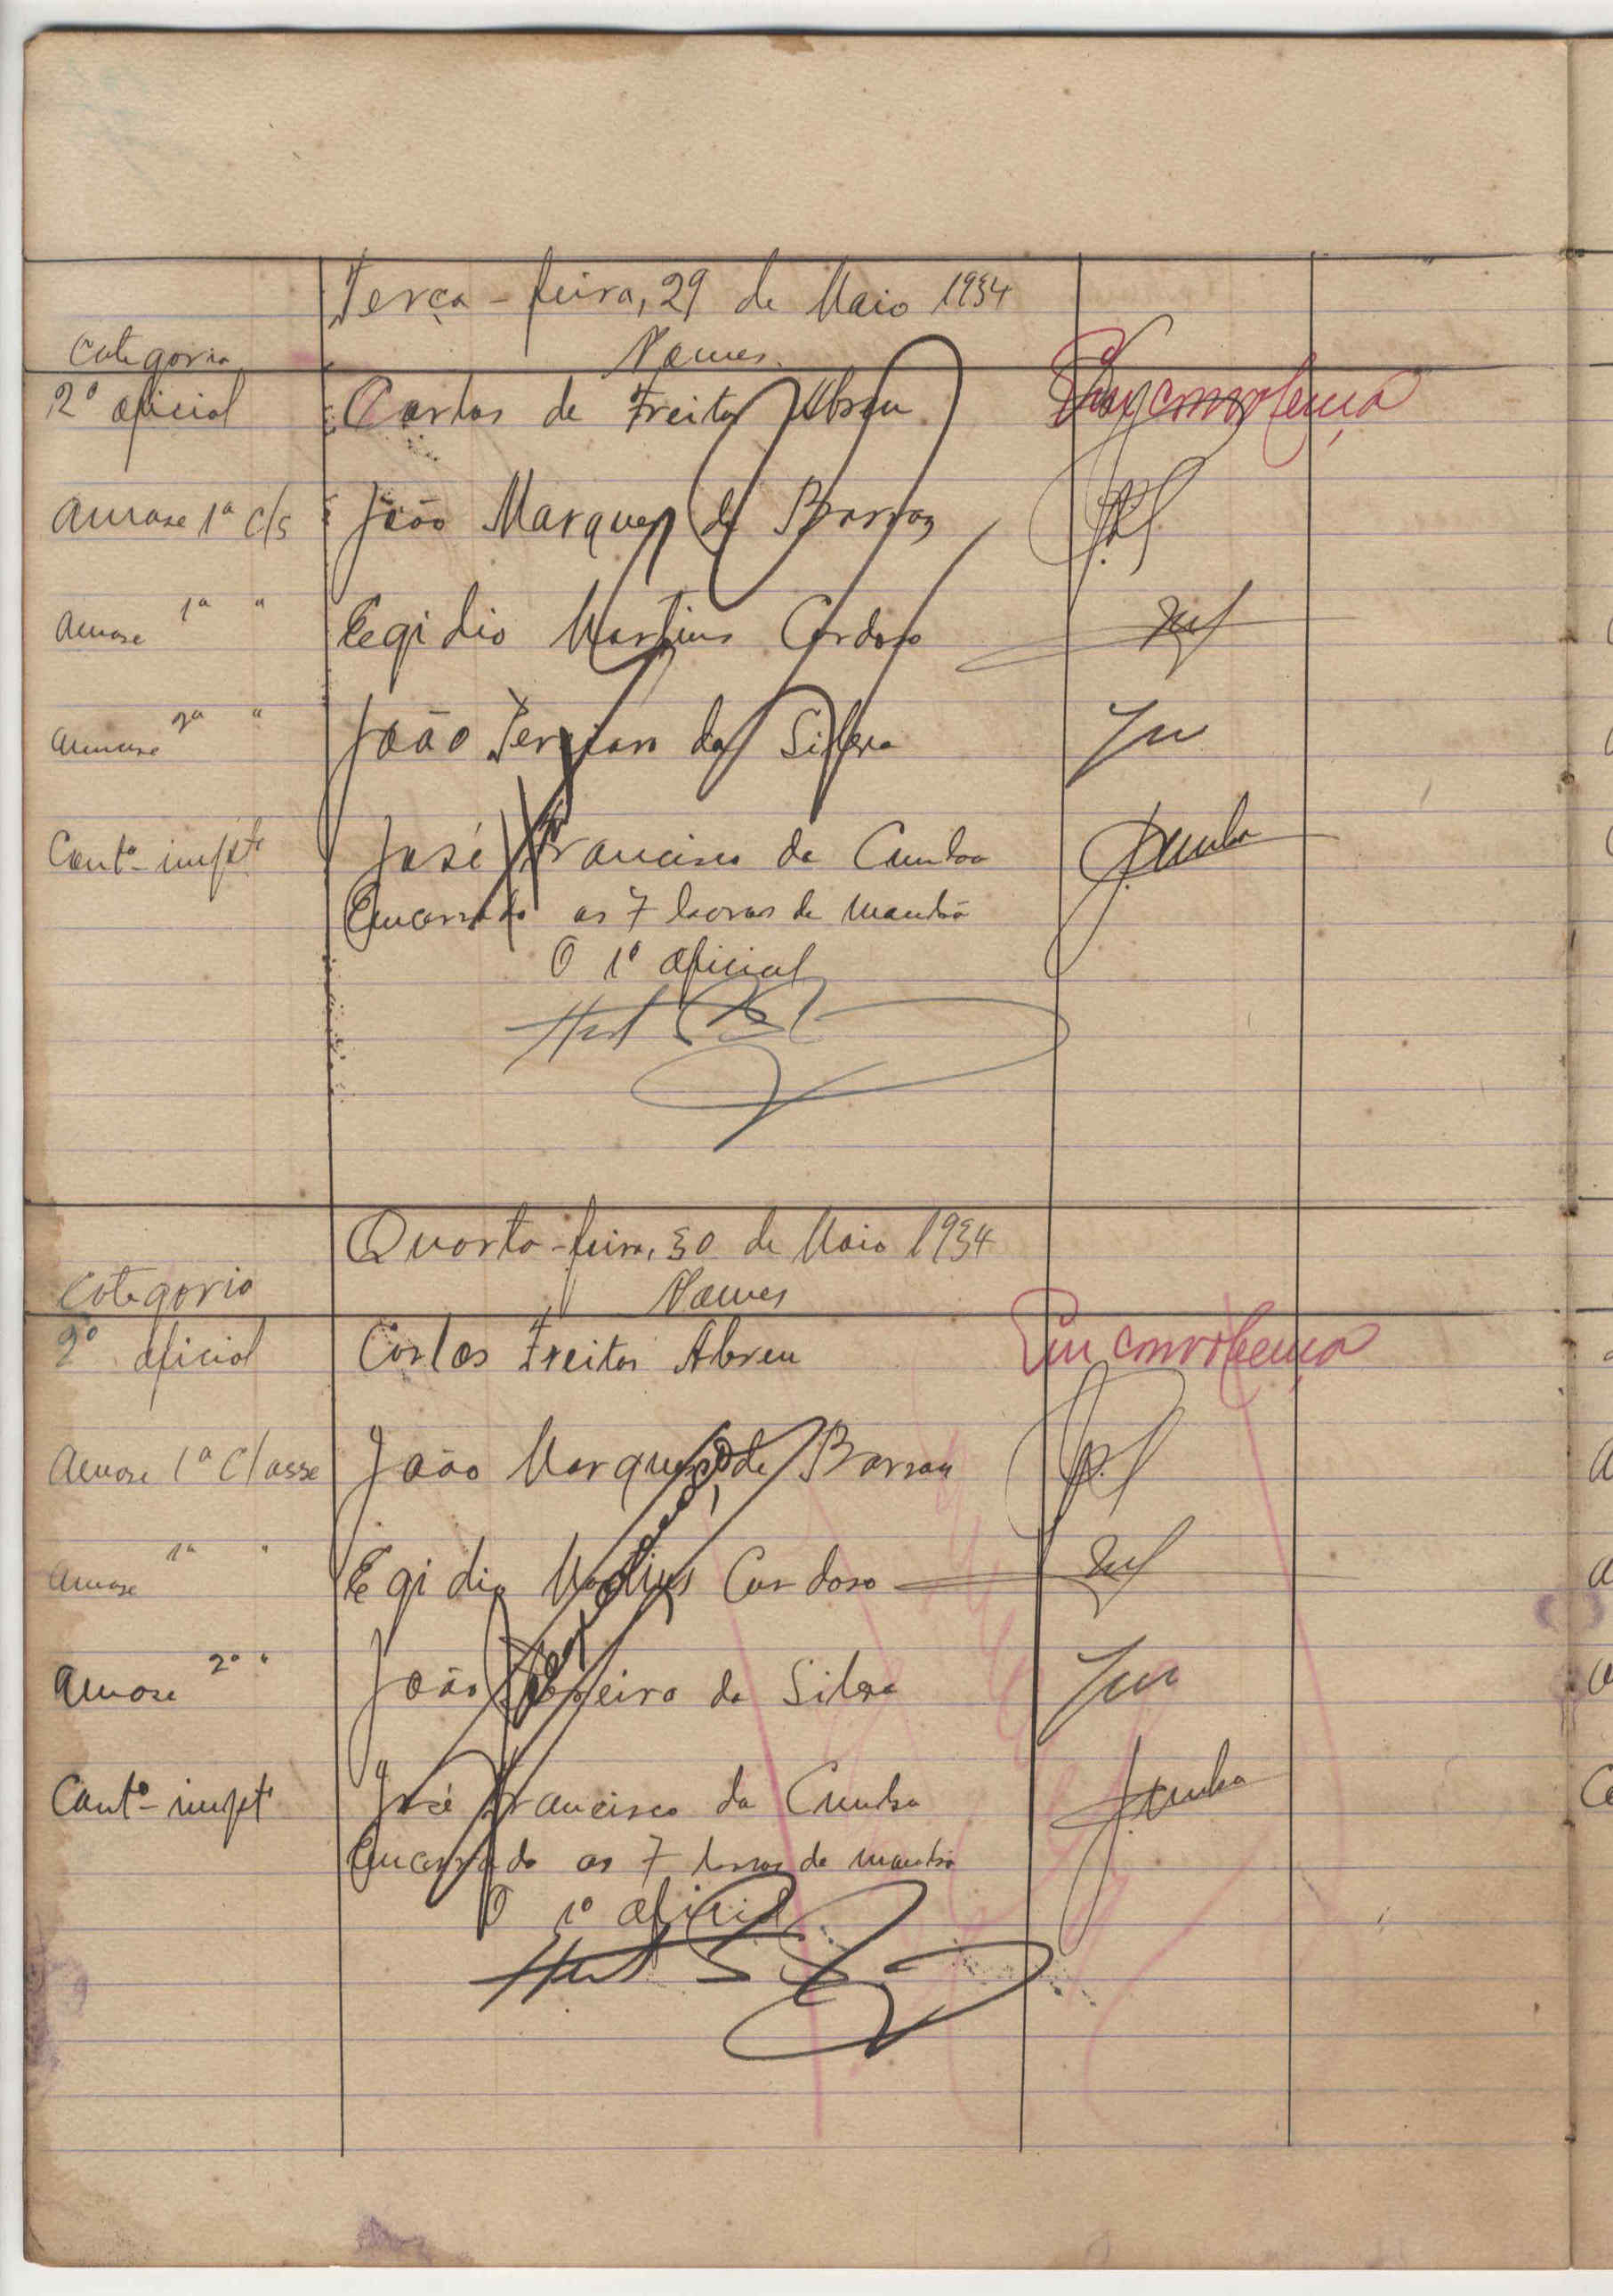 Terça-feira, 29 de Maio 1934
Categoria Nomes
2º oficial Carlos de Freitas Abreu
1ª cls João Marques de Barros
1ª " Egidio Martins Cardoso
2ª " João da Silva
Contº- impte José Francisco da Cunha
Encerrado as 7 horas da manhã
O 1º oficial
Quarta-feira, 30 de Maio 1934
Categoria Nomes
2º oficial Carlos Freitas Abreu Em convolença
1ª Classe João Marques de Barros
1ª " Egidio Martins Cardoso
2ª " João da Silva
Contº- impte José Francisco da Cunha
Encerrado as 7 horas da manhã
O 1º oficial